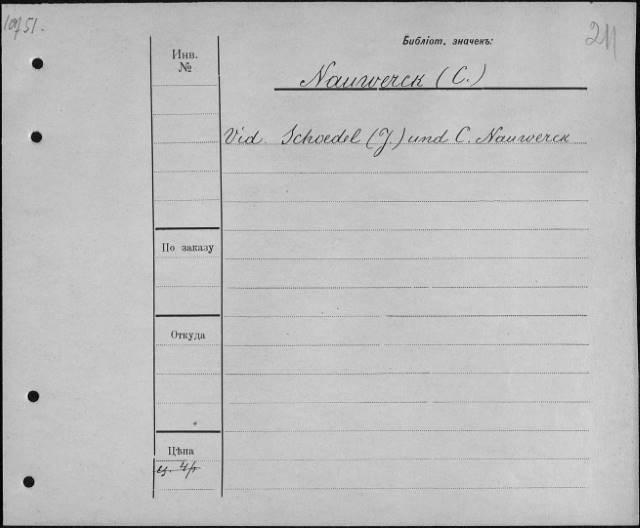 1951.
211
Библіот. значекъ:
Инв.
№
Nauwerck (C.)
Vid. Schoedel (J.) und C. Nauwerck
По заказу
Откуда
Цѣна